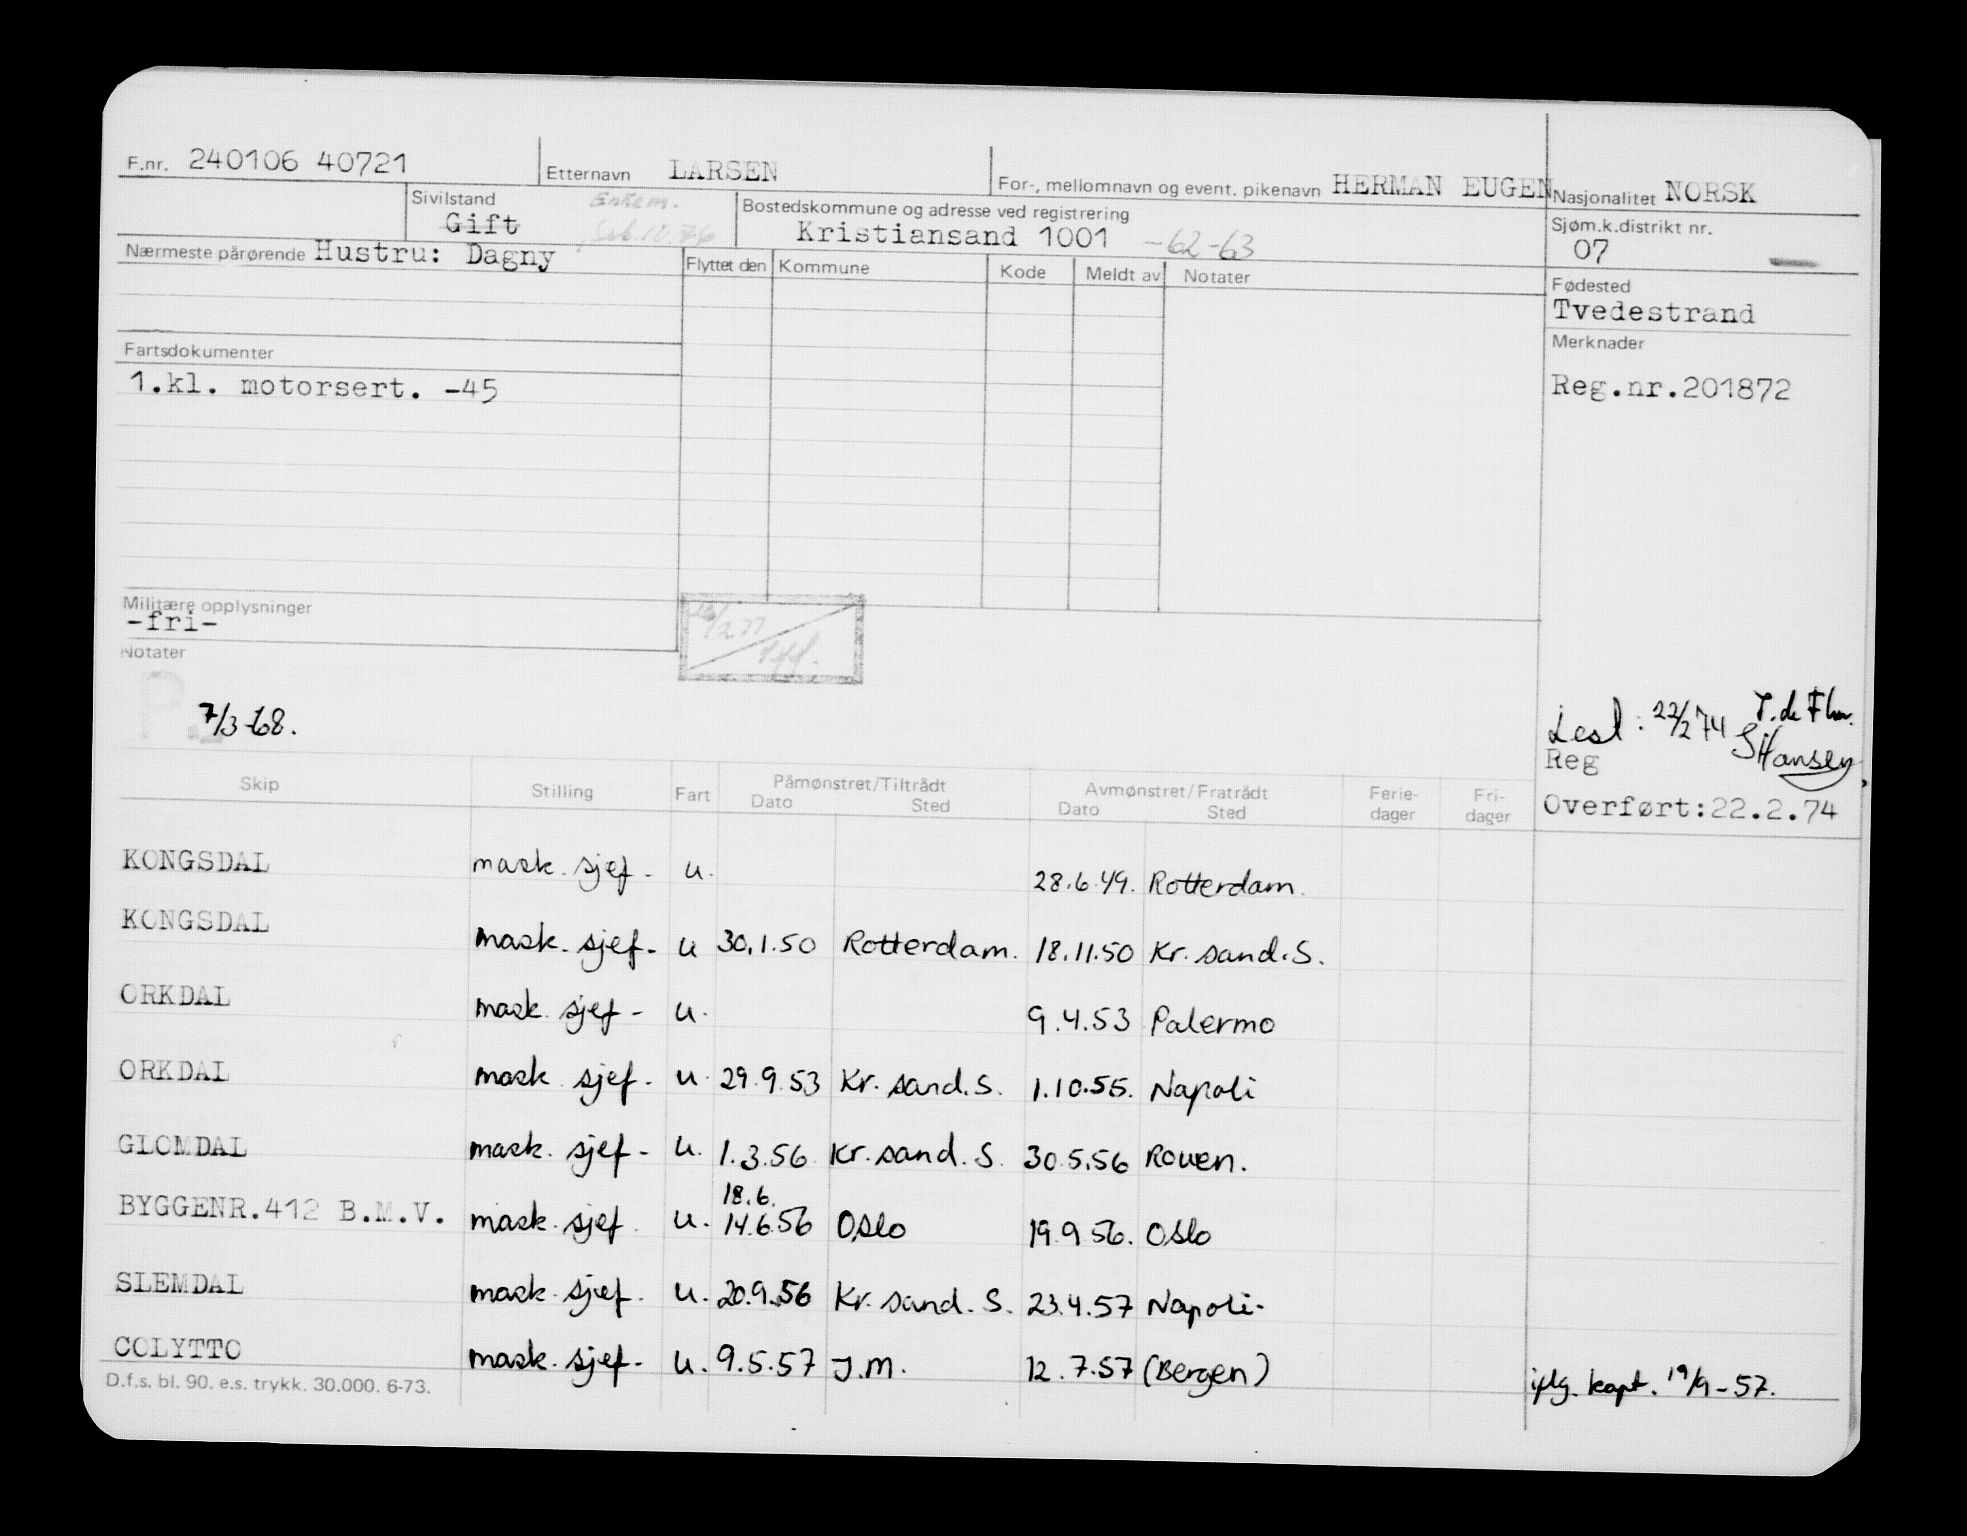 F.nr. 240106 40721 Etternavn LARSEN For-, mellomnavn og event. pikenavn HERMAN EUGEN Nasjonalitet NORSK
Sivilstand Enkem. Bostedskommune og adresse ved registrering Sjøm.k.distrikt nr.
Gift Kristiansand 1001 -62-63 07
Nærmeste pårørende Hustru: Dagny Flyttet den Kommune Kode Meldt av Notater
Fødested
Tvedestrand
Merknader
Fartsdokumenter
1.kl. motorsert. -45 Reg.nr.201872
Militære opplysninger
-fri-
Notater
P.
7/3-68.
Lest: 22/2 74
Reg SHansen
Overført:22.2.74
Skip Stilling Fart Påmønstret/Tiltrådt Avmønstret/Fratrådt Ferie- Fri-
Dato Sted Dato Sted dager dager
KONGSDAL mask. sjef- u. 28.6.49. Rotterdam.
KONGSDAL mask. sjef- u 30.1.50 Rotterdam. 18.11.50 Kr. sand.S.
ORKDAL mask. sjef- u. 9.4.53 Palermo
ORKDAL mask sjef- u. 29.9.53 Kr. sand.S. 1.10.55. Napoli
GLOMDAL mask. sjef- u. 1.3.56 Kr. sand.S. 30.5.56 Rouen.
18.6.
BYGGENR.412 B.M.V. mask. sjef. u. 14.6.56 Oslo 19.9 56. Oslo
SLEMDAL mask. sjef. u. 20.9.56 Kr. sand. S. 23.4.57 Napoli-
COLYTTO mask. sjef- u. 9.5.57 J.M. 12.7.57 (Bergen) iflg. kapt. 19/9-57.
D.f.s. bl. 90. e.s. trykk. 30.000. 6-73.